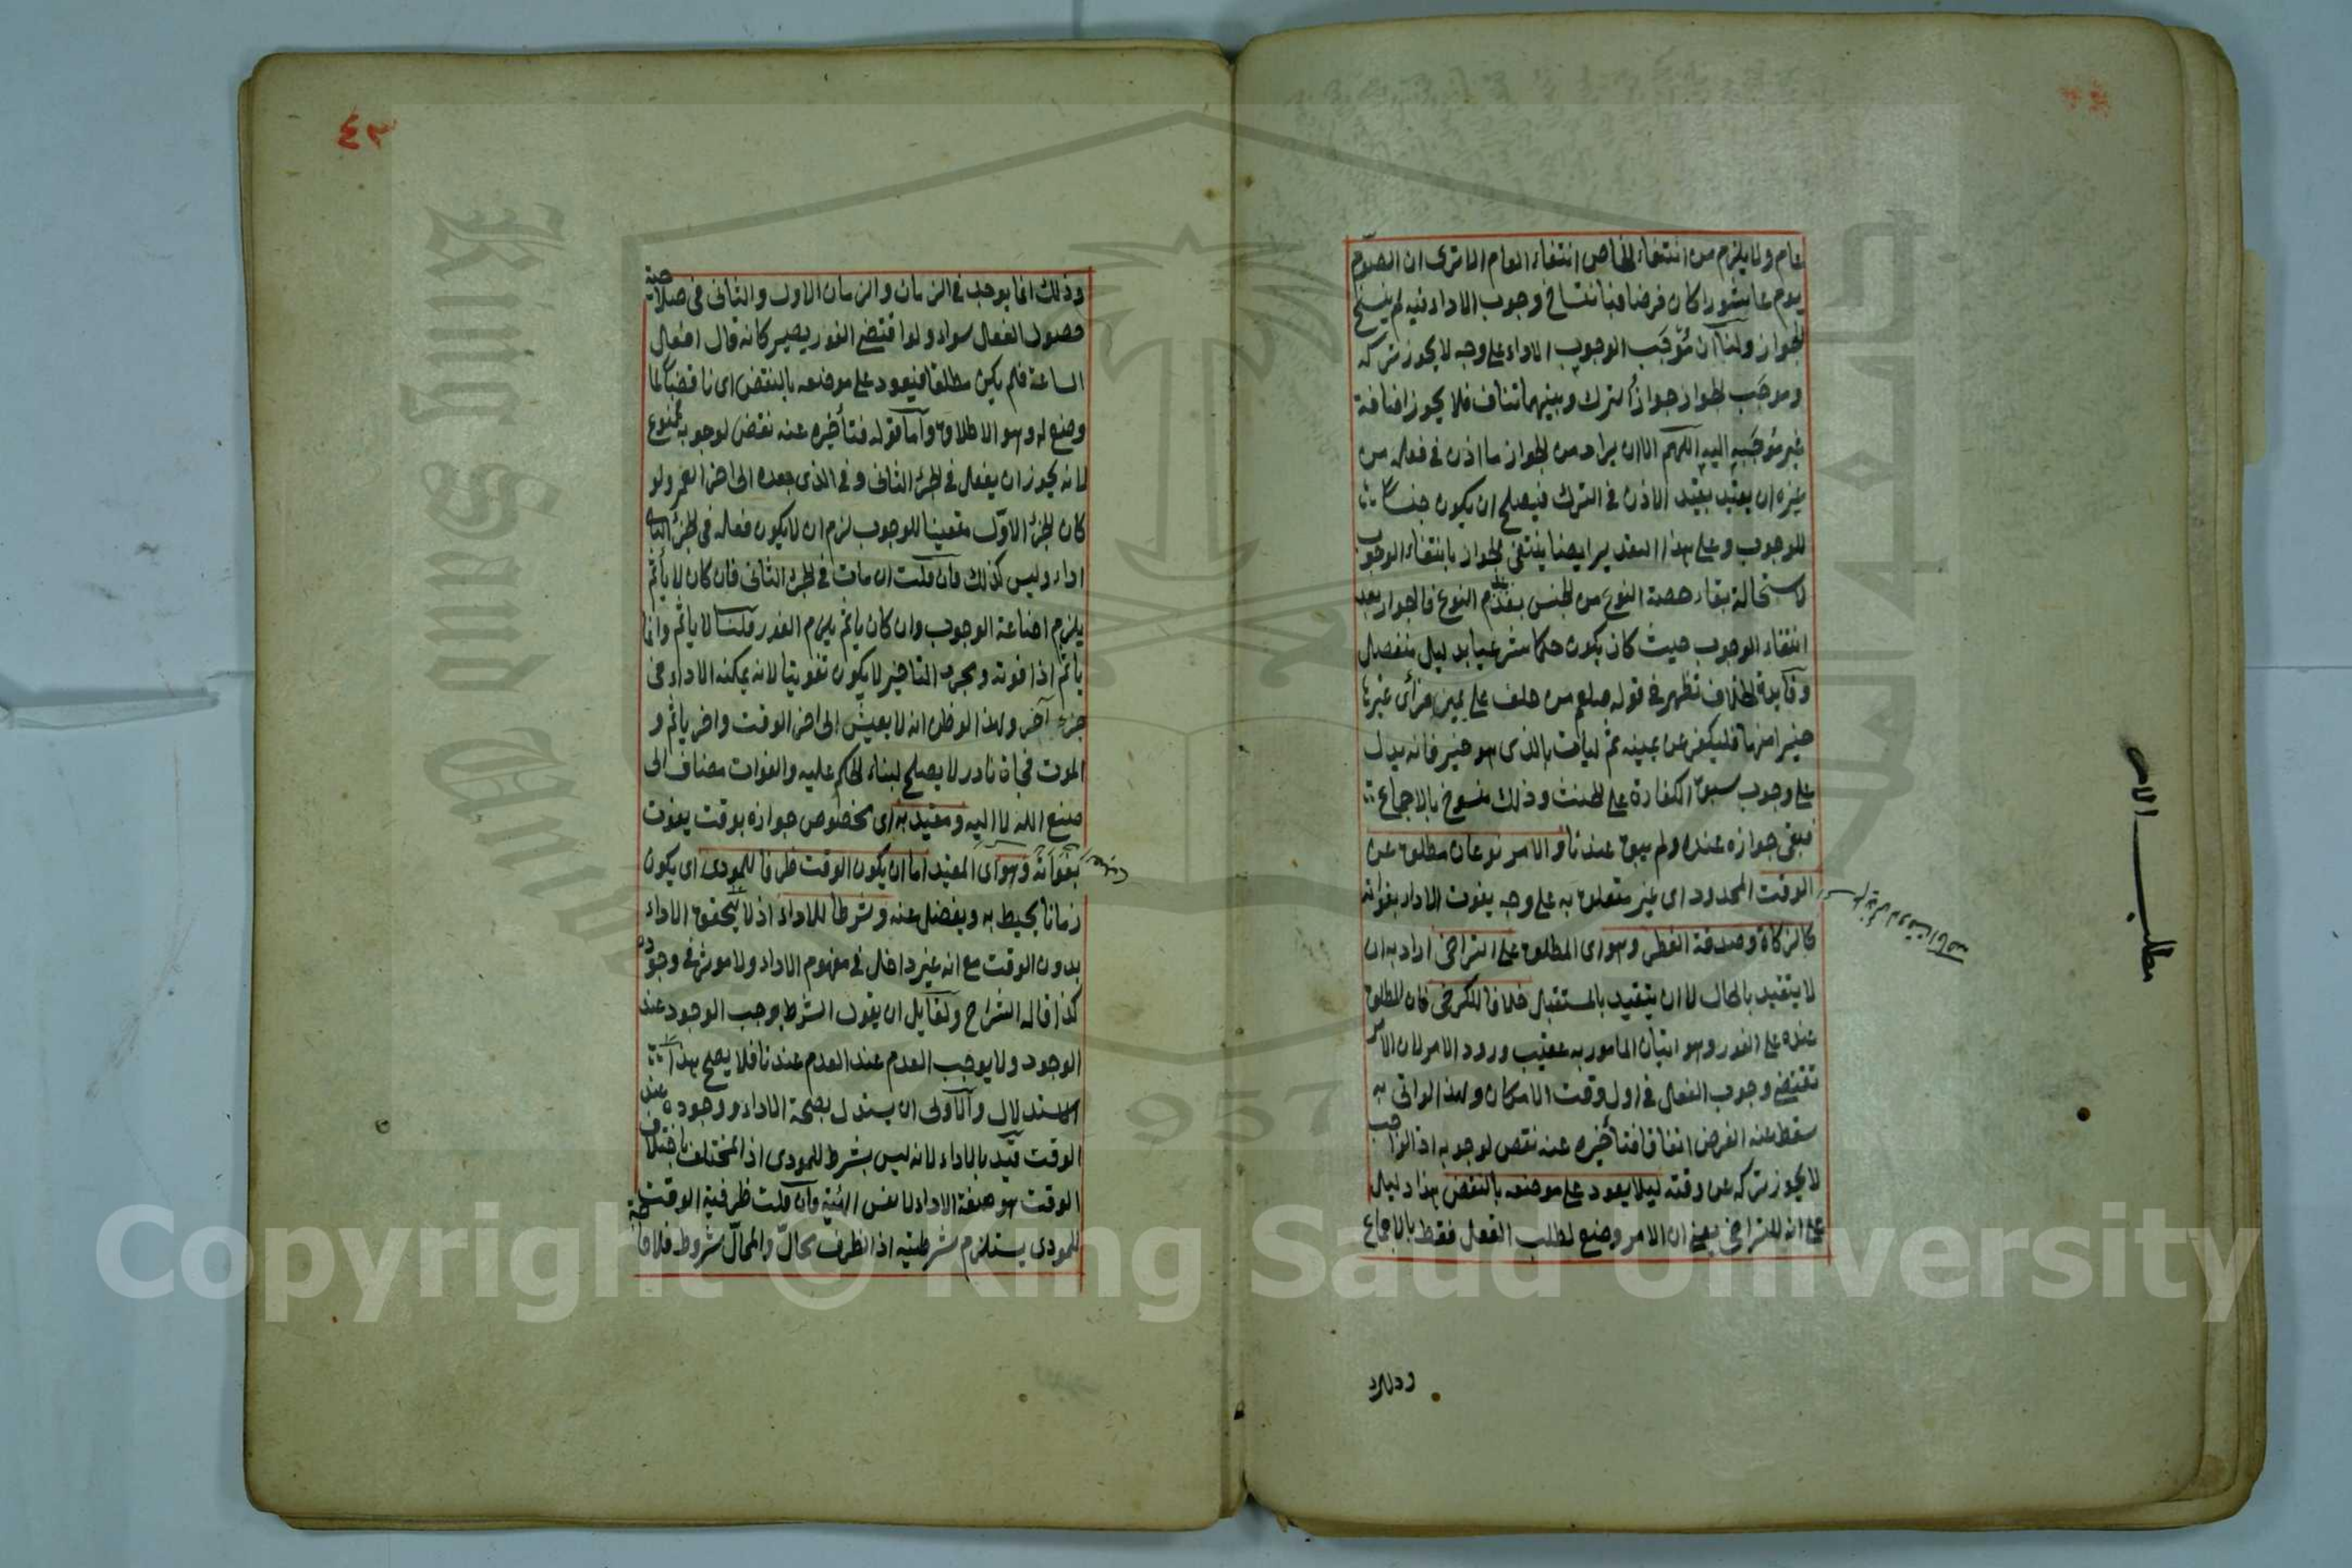 عام ولا يلزم من انتفاء الخاص انتفاء العام الا ترى ان الصوم
يوم عاشورا كان فرضا فبانتساخ وجوب الاداء فيه لم ينسخ
الجواز ولنا ان موجَب الوجوب الاداء على وجه لا يجوز تركه
وموجَب الجواز جواز الترك وبينهما تناف فلا يجوز اضافة
غير موجَبه اليه اللهم الا ان يراد من الجواز ما اذن في فعله من
غيره ان يقيد بقيد الاذن في الترك فيصلح ان يكون جنسا
للوجوب وعلى هذا التقدير ايضا ينتفى الجواز بانتفاء الوجوب
لاستحالة بقاء حصة النوع من الجنس بعدم النوع فالجواز بعد
انتفاء الوجوب حيث كان يكون حكما شرعيا بدليل منفصل
وفايدة الخلاف تظهر في قوله صلعم من حلف على يمين فرأى غيرها
خيرا منها فليكفر عن يمينه ثم ليأت بالذى هو خير فانه يدل
على وجوب سبق الكفارة على الحنث وذلك منسوخ بالاجماع
فبقى جوازه عنده ولم يبق عندنا والامر نوعان مطلق عن
الوقت المحدود اى غير متعلق به على وجه يفوت الاداء بفواته
كالزكاة وصدقة الفطر وهو اى المطلق على التراخى اراد به ان
لا يتقيد بالحال لا ان يتقيد بالمستقبل خلافا للكرخى فان المطلق
عنده على الفور وهو اتيان المامور به عقيب ورود الامر لان الامر
تقتضى وجوب الفعل في اول وقت الامكان ولهذا لو اتى به
سقط عنه الفرض اتفاقا فتأخيره عنه نقص لوجوبه اذ الواجب
لا يجوز تركه عن وقته ليلا يعود على موضعه بالنقض هذا دليل
على انه للتراخى يعنى ان الامر وضع لطلب الفعل فقط بالاجماع
مطلب الامر
وذلك
٤٣
وذلك انما يوجد في الزمان والزمان الاول والثانى في صلاحية
حصول الفعل سواء ولو اقتضى الفور يصير كانه قال افعل
الساعة فلم يكن مطلقا فيعود على موضعه بالنقض اى ناقضا لما
وضع له وهو الاطلاق واما قوله فتأخيره عنه نقض لوجوبه ممنوع
لانه يجوز ان يفعل في الجزء الثانى وفي الذى بعده الى اخر العمر ولو
كان الجزء الاول متعينا للوجوب لزم ان لا يكون فعله في الجزء الثانى
اداء وليس كذلك فان قلت ان مات في الجزء الثانى فان كان لا يأثم
يلزم اضاعة الوجوب وان كان ياثم يلزم الفور قلنا لا ياثم وانما
يأثم اذا فوته ومجرد التاخير لا يكون تفويتا لانه يمكنه الاداء في
جزء آخر ولهذا لو ظن انه لا يعيش الى اخر الوقت واخر ياثم و
الموت فجاة نادر لا يصلح لبناء الحكم عليه والفوات مضاف الى
صنع الله لا اليه ومقيد به اى مخصوص جوازه بوقت يفوت
بفواته وهو اى المقيد اما ان يكون الوقت ظرفا للمودى اى يكون
زمانا يحيط به ويفضل عنه وشرطا للاداء اذ لا يتحقق الاداء
بدون الوقت مع انه غير داخل في مفهوم الاداء ولا موثر في وجوده
كذا قاله الشراح ولقايل ان يقول الشرط يوجب الوجود عند
الوجود ولا يوجب العدم عند العدم عندنا فلا يصح هذا
الاستدلال والاولى ان يستدل بصحة الاداء ووجوده عند
الوقت قيد بالاداء لانه ليس بشرط للمودى اذ المختلف باختلاف
الوقت هو صفة الاداء لا نفس الهيئة وان قلت ظرفية الوقت
للمودى يستلزم شرطيته اذ الظرف محالّ والمحالّ شروط فلا حاجة